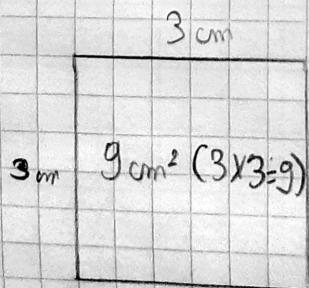 3 cm
3 cm 9 cm² (3x3=9)